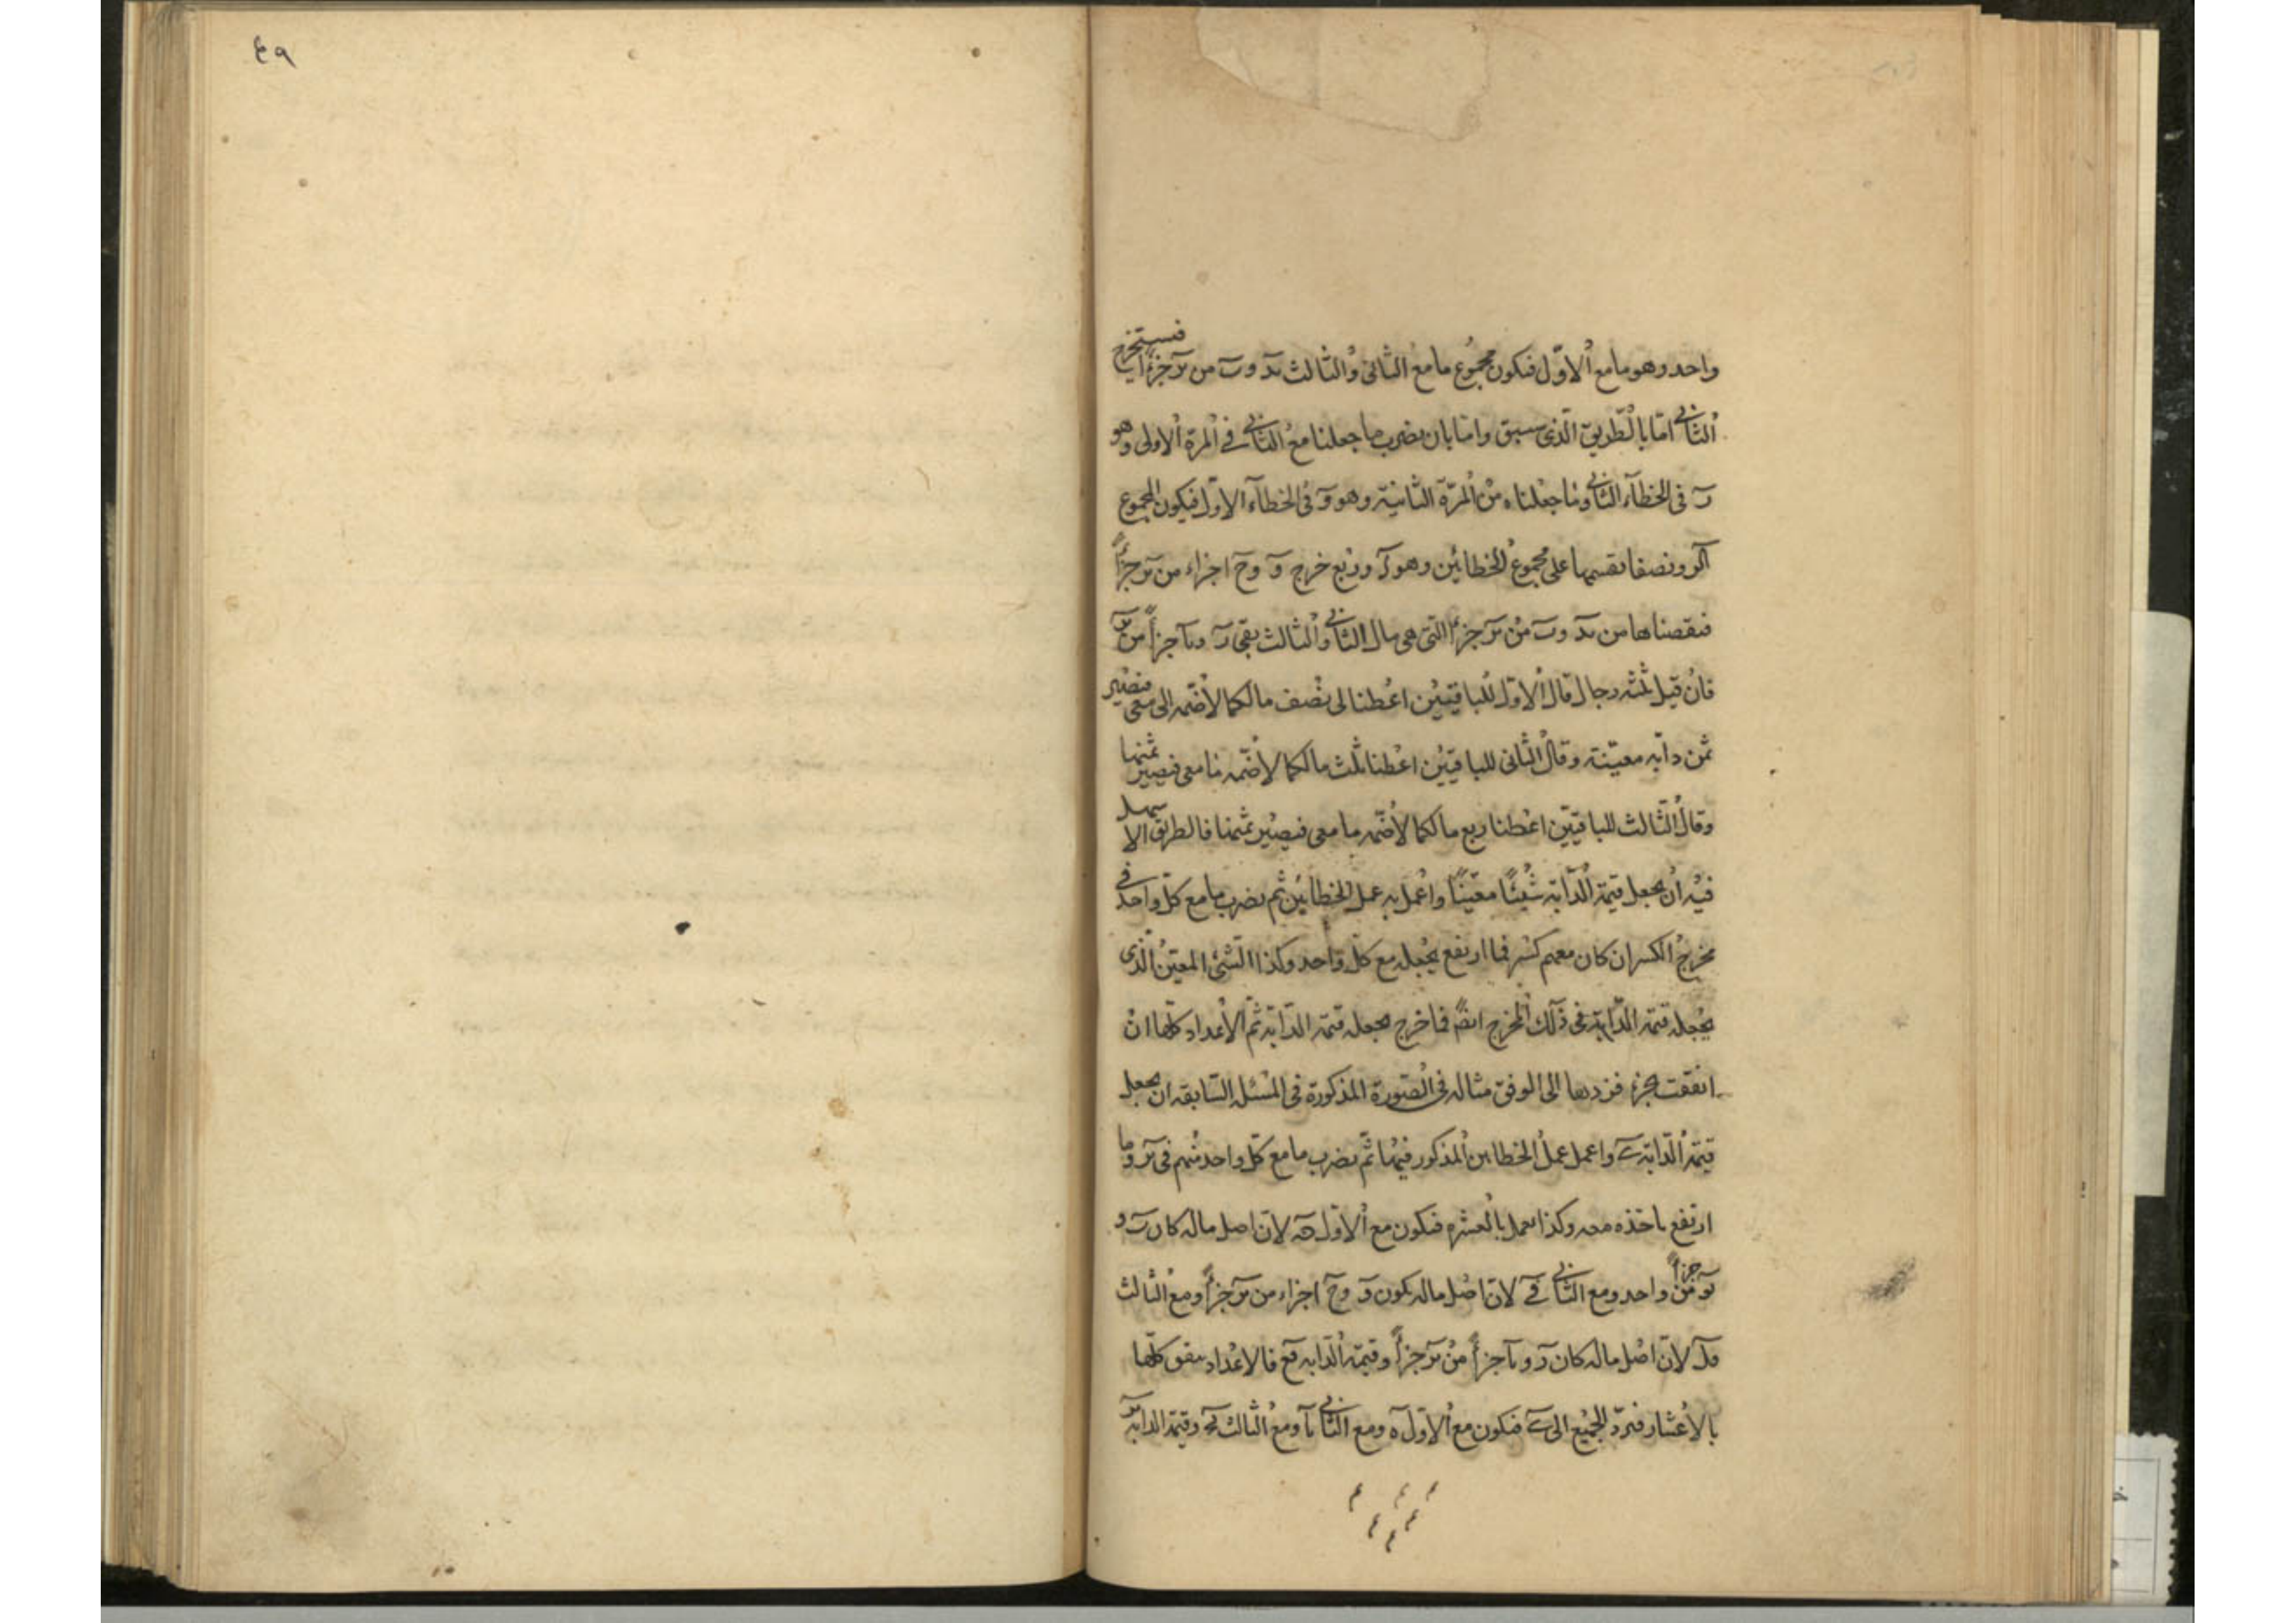 ٤٩
واحد وهو ما مع الاوّل فيكون مجموع ما مع الثانى والثالث يد و ب من يز جزءًا فنستخرج
الثانى امّا بالطّريق الّذى سبق وامّا بان نضرب ما جعلنا مع الثانى فى المرّة الاولى وهو
فى الخطآء الثانى وما جعلناه من المرّة الثانية وهو و فى الخطآء الاوّل فيكون المجموع
ونصفا نقسمها على مجموع الخطائين وهو وربع خرج و و ح اجزاء من يز جزءًا
فنقصناها من يد و ب من يز جزءًا التى هى مال الثانى والثالث بقى ز و يا جزءًا من يز
فان قيل ثلثه رجال قال الاوّل للباقيّين اعطنا لى نصف مالكما لأضمّه الى معى فيصير
ثمن دابّه معيّنة وقال الثانى للباقيّين اعطنا ثلث مالكما لأضمّه ما معى فيصير ثمنها
وقال الثّالث للباقيّين اعطنا ربع مالكما لأضمّه ما معى فيصير ثمنها فالطريق الاسهل
فيه ان نجعل قيمة الدّابّة شيئًا معيّنًا واعمل به عمل الخطائين ثم نضرب ما مع كلّ واحد فى
مخرج الكسر ان كان معهم كسر فما ارتفع نجعله مع كلّ واحد وكذا الشّئ المعيّن الّذى
نجعله قيمة الدّابّة فى ذلك المخرج ايضًا فما خرج نجعله قيمة الدّابّة ثمّ الأعداد كلّها ان
اتفقت بجزء فزدها الى الوفق مثاله فى الصّورة المذكورة فى المسئلة السّابقه ان نجعل
قيمة الدّابّة ى واعمل عمل الخطاين المذكور فيها ثمّ نضرب ما مع كلّ واحد منهم فى يز وما
ارتفع ناخذه معه وكذا نعمل بالعشره فيكون مع الاوّل لانّ اصل ماله كان ب و
جزءًا من واحد ومع الثانى قى لانّ اصل ماله يكون و و ح اجزاء من يز جزءًا ومع الثالث
قل لانّ اصل ماله كان ز و يا جزءًا من يز جزءًا وقيمة الدّابّه قع فالاعداد متفق كلّها
بالأعشار فنردّ الجميع الى ى فيكون مع الاوّل ه ومع الثانى يا ومع الثالث يج وقيمة الدابّه يز